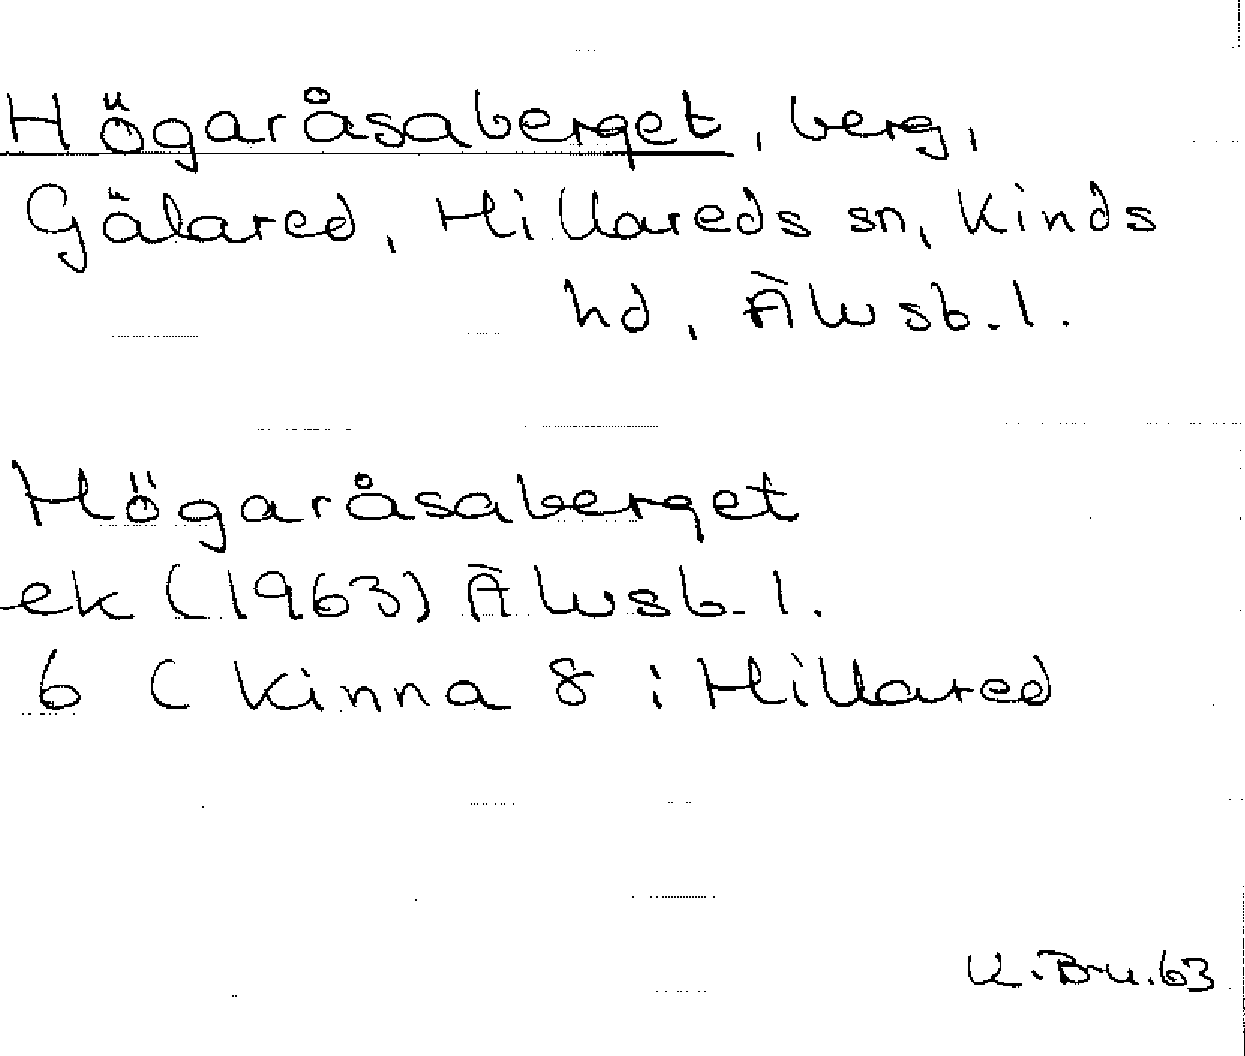 Högaråsaberget, berg,
Gälared, Hillareds sn, Kinds
hd, Älvsb. l.
Högaråsaberget
ek (1963) Älvsb. l.
6 ( Kinna 8 i Hillared
K. Bru. 63